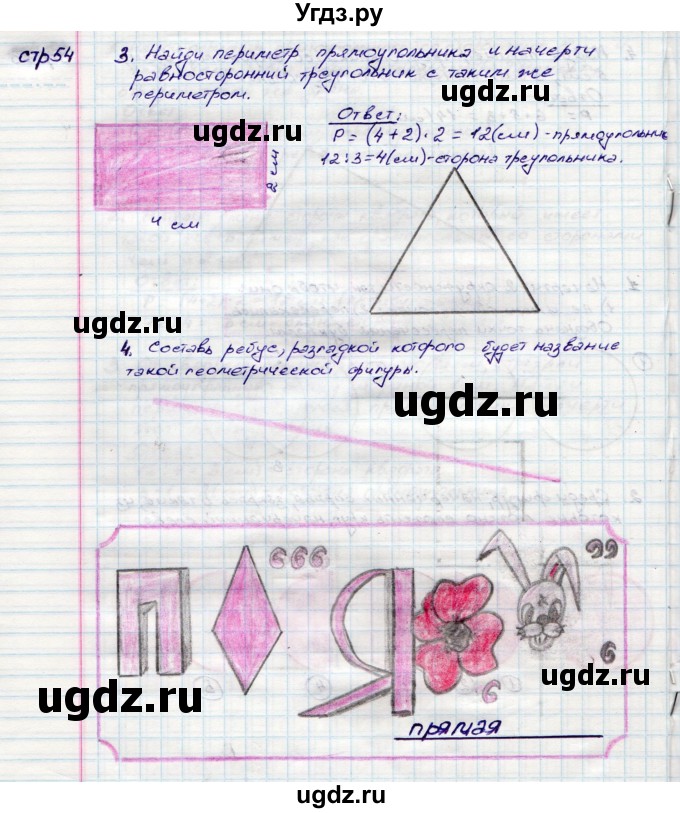 Угдз.ру
стр54
3. Найди периметр прямоугольника и начерти
равносторонний треугольник с таким же
периметром.
Ответ:
P = (4+2)·2 = 12(см) - прямоугольник
12:3=4(см)-сторона треугольника.
2 см
4 см
ugdz.ru
ugdz.ru
ugdz.ru
4. Составь ребус, разгадкой которого будет название
такой геометрической фигуры.
ugdz.ru
П
Я
ugdz.ru
ugdz.ru
прямая
ugdz.ru
ugdz.ru